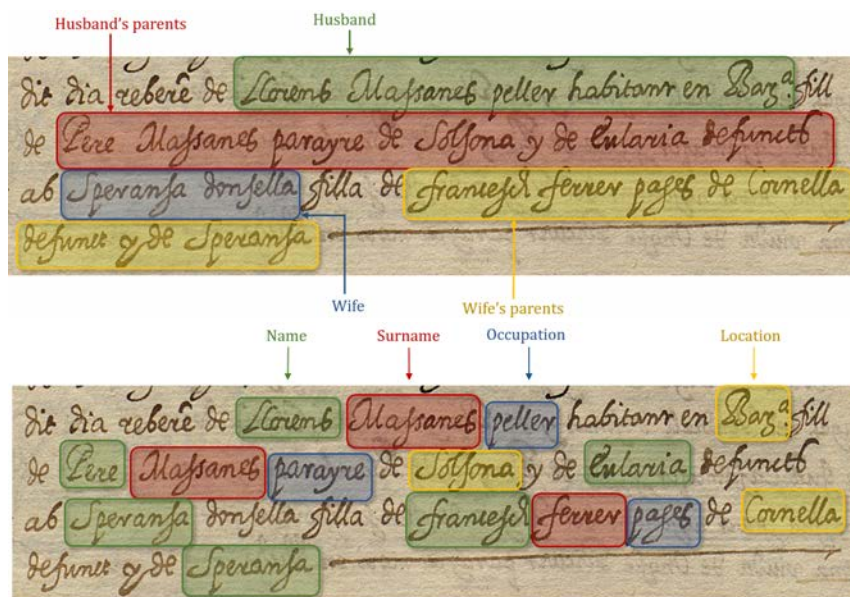 Husband's parents
Husband
dit dia reberẽ de Llorens Massanes peller habitant en Barª. fill
de Pere Massanes parayre de Solsona y de Eularia defuncts
ab Speransa donsella filla de francesch ferrer pages de Cornella
defunct y de Speransa
Wife
Wife's parents
Name
Surname
Occupation
Location
dit dia reberẽ de Llorens Massanes peller habitant en Barª. fill
de Pere Massanes parayre de Solsona y de Eularia defuncts
ab Speransa donsella filla de francesch ferrer pages de Cornella
defunct y de Speransa